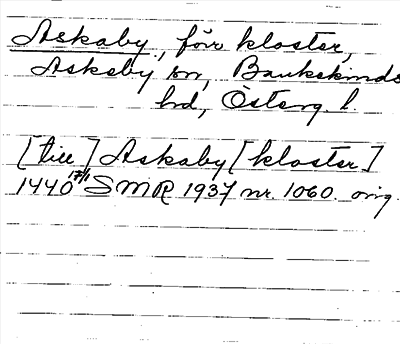 Askaby, förr kloster,
Askeby sn, Bankekinds
hd, Österg. l.
[till] Askaby [kloster]
1440 17/1 SMR 1937 nr. 1060. orig.